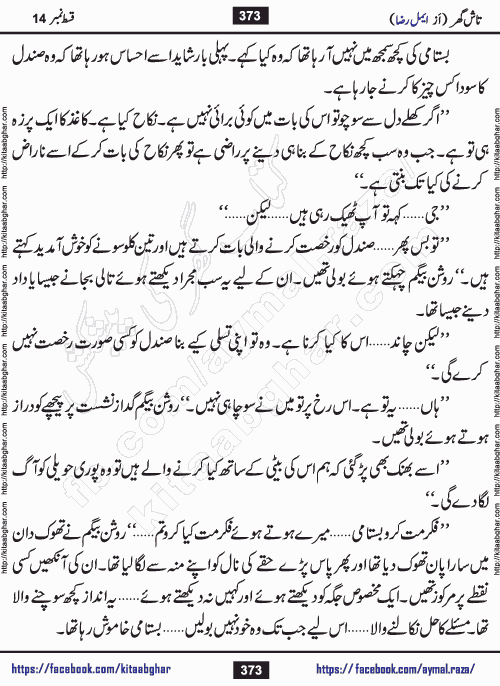 تاش گھر (از ایمل رضا)
373
قسط نمبر 14
بستامی کی کچھ سمجھ میں نہیں آ رہا تھا کہ وہ کیا کہے۔ پہلی بار شاید اسے احساس ہو رہا تھا کہ وہ صندل
کا سودا کس چیز کا کرنے جا رہا ہے۔
’’اگر کھلے دل سے سوچو تو اس کی بات میں کوئی برائی نہیں ہے۔ نکاح کیا ہے۔ کاغذ کا ایک پرزہ
ہی تو ہے۔ جب وہ سب کچھ نکاح کے بنا ہی دینے پر راضی ہے تو پھر نکاح کی بات کر کے اسے ناراض
کرنے کی کیا تک بنتی ہے۔‘‘
’’جی...... کہہ تو آپ ٹھیک رہی ہیں...... لیکن......‘‘
’’تو بس پھر...... صندل کو رخصت کرنے والی بات کرتے ہیں اور تین کلو سونے کو خوش آمدید کہتے
ہیں۔‘‘ روشن بیگم چہکتے ہوئے بولی تھیں۔ ان کے لیے یہ سب مجرا دیکھتے ہوئے تالی بجانے جیسا یا داد
دینے جیسا تھا۔
’’لیکن چاند...... اس کا کیا کرنا ہے۔ وہ تو اپنی تسلی کیے بنا صندل کو کسی صورت رخصت نہیں
کرے گی۔‘‘
’’ہاں...... یہ تو ہے۔ اس رخ پر تو میں نے سوچا ہی نہیں۔‘‘ روشن بیگم گداز نشست پر پیچھے کو دراز
ہوتے ہوئے بولی تھیں۔
’’اسے بھنک بھی پڑ گئی کہ ہم اس کی بیٹی کے ساتھ کیا کرنے والے ہیں تو وہ پوری حویلی کو آگ
لگا دے گی۔‘‘
’’فکر مت کرو بستامی...... میرے ہوتے ہوئے فکر مت کیا کرو تم......‘‘ روشن بیگم نے تھوک دان
میں سارا پان تھوک دیا تھا اور پھر پاس پڑے حقے کی نال کو اپنے منہ سے لگا لیا تھا۔ ان کی آنکھیں کسی
نقطے پر مرکوز تھیں۔ ایک مخصوص جگہ کو دیکھتے ہوئے اور کہیں نہ دیکھتے ہوئے...... یہ انداز کچھ سوچنے والا
تھا۔ مسئلے کا حل نکالنے والا...... اس لیے جب تک وہ خود نہیں بولیں...... بستامی خاموش رہا تھا۔
https://facebook.com/kitaabghar
373
https://facebook.com/aymal.raza/
http://kitaabghar.com http://kitaabghar.com http://kitaabghar.com http://kitaabghar.com http://kitaabghar.com http://kitaabghar.com
http://kitaabghar.com http://kitaabghar.com http://kitaabghar.com http://kitaabghar.com http://kitaabghar.com http://kitaabghar.com
کتاب گھر کی پیشکش
fb.com/aymal.raza
kitaabghar.com